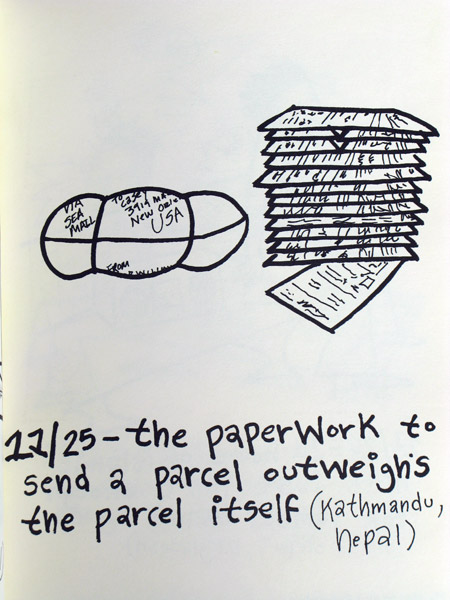 VIA
SEA
MAIL
TO
CASEY
3919
NEW
USA
FROM
11/25 - the paperwork to
send a parcel outweighs
the parcel itself (Kathmandu,
Nepal)